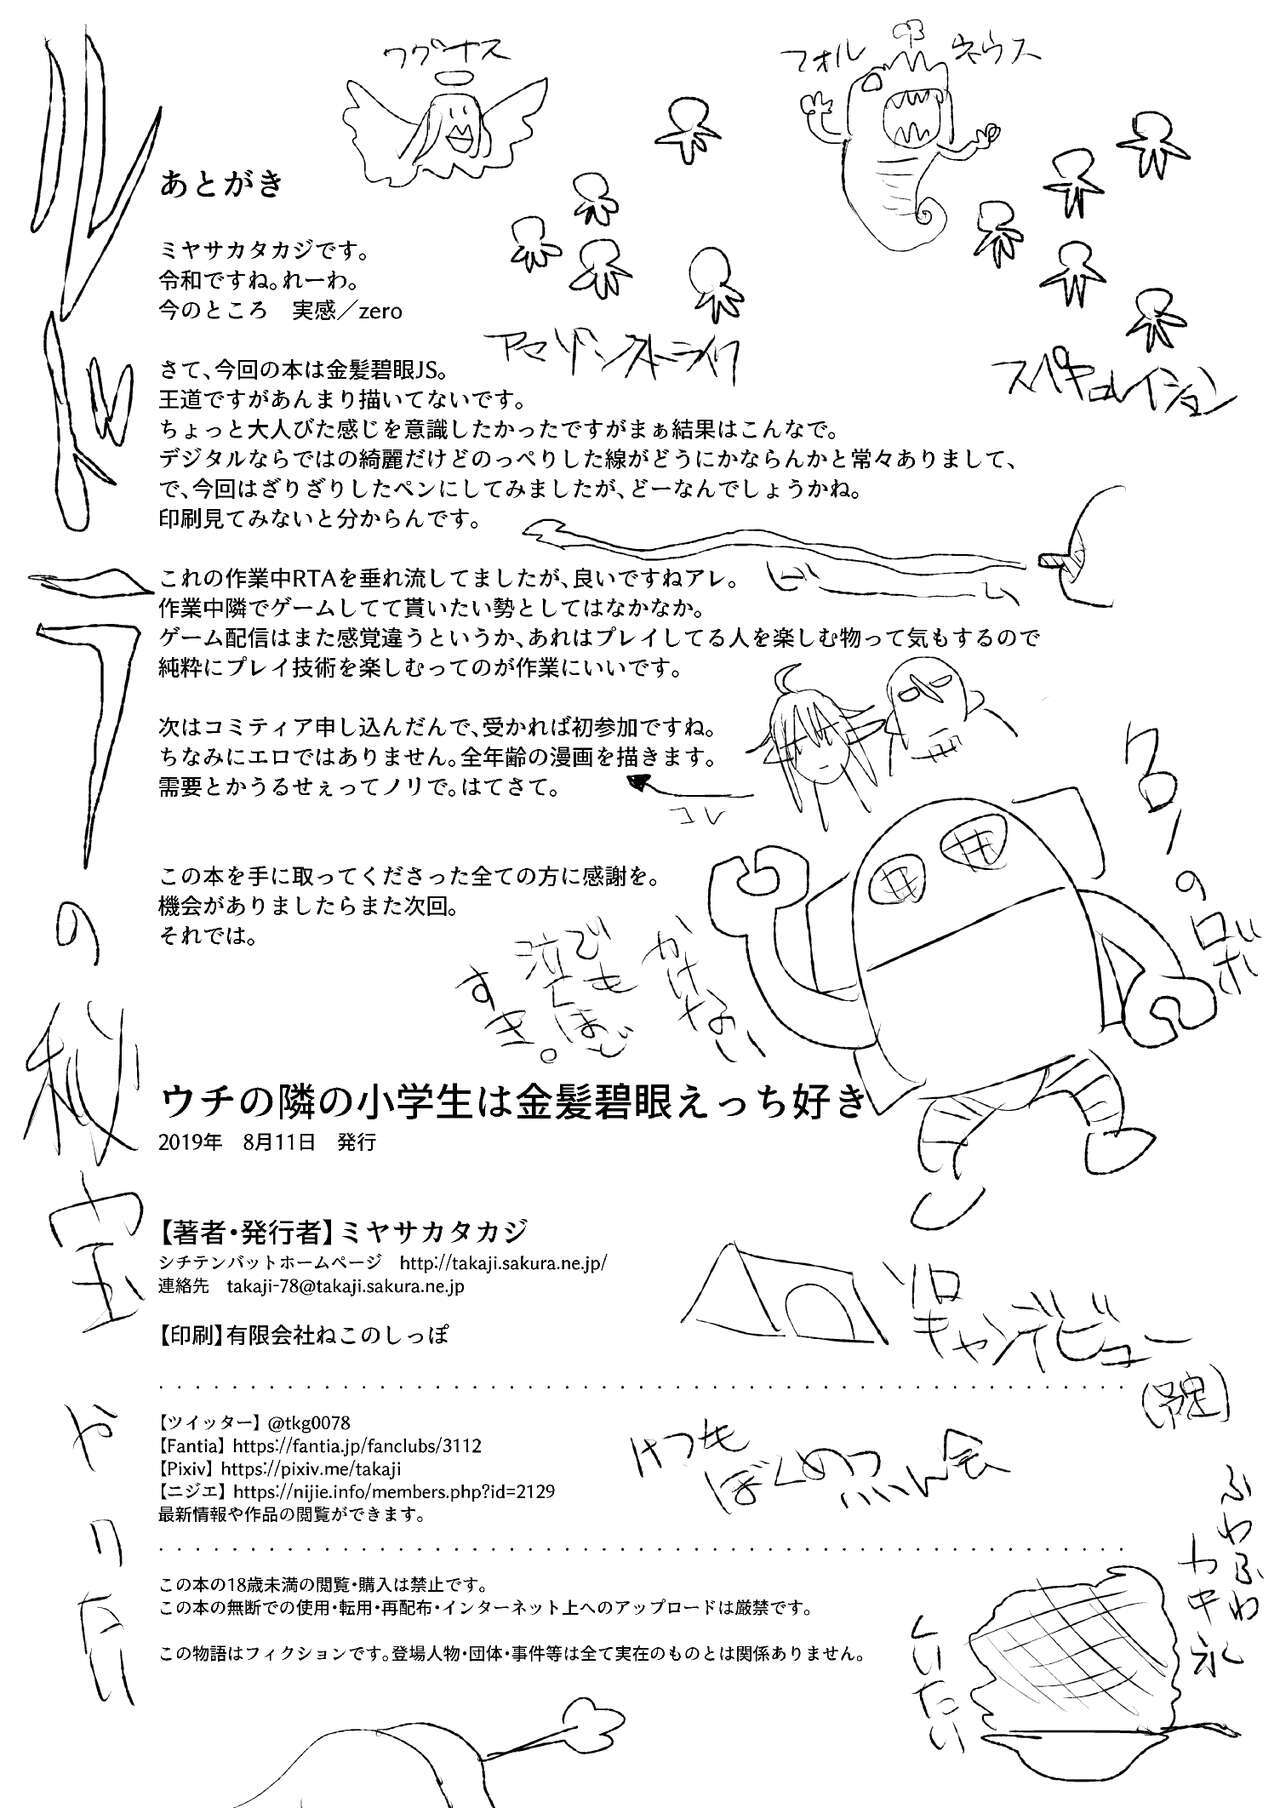 ワグナス
フォルネウス
あとがき
ミヤサカタカジです。
令和ですね。れーわ。
今のところ 実感／zero
アマゾンストライク
スペキュレイション
さて、今回の本は金髪碧眼JS。
王道ですがあんまり描いてないです。
ちょっと大人びた感じを意識したかったですがまぁ結果はこんなで。
デジタルならではの綺麗だけどのっぺりした線がどうにかならんかと常々ありまして、
で、今回はざりざりしたペンにしてみましたが、どーなんでしょうかね。
印刷見てみないと分からんです。
これの作業中RTAを垂れ流してましたが、良いですねアレ。
作業中隣でゲームしてて貰いたい勢としてはなかなか。
ゲーム配信はまた感覚違うというか、あれはプレイしてる人を楽しむ物って気もするので
純粋にプレイ技術を楽しむってのが作業にいいです。
次はコミティア申し込んだんで、受かれば初参加ですね。
ちなみにエロではありません。全年齢の漫画を描きます。
需要とかうるせぇってノリで。はてさて。
コレ
この本を手に取ってくださった全ての方に感謝を。
機会がありましたらまた次回。
それでは。
かけない
でも
泣くほど
すき。
の秘宝
やりたい
ウチの隣の小学生は金髪碧眼えっち好き
2019年 8月11日 発行
【著者・発行者】ミヤサカタカジ
シチテンバットホームページ http://takaji.sakura.ne.jp/
連絡先 takaji-78@takaji.sakura.ne.jp
【印刷】有限会社ねこのしっぽ
ソロ
キャンデビュー
(予定)
【ツイッター】@tkg0078
【Fantia】https://fantia.jp/fanclubs/3112
【Pixiv】https://pixiv.me/takaji
【ニジエ】https://nijie.info/members.php?id=2129
最新情報や作品の閲覧ができます。
ふわふわ
カキ氷
くいたい
この本の18歳未満の閲覧・購入は禁止です。
この本の無断での使用・転用・再配布・インターネット上へのアップロードは厳禁です。
この物語はフィクションです。登場人物・団体・事件等は全て実在のものとは関係ありません。